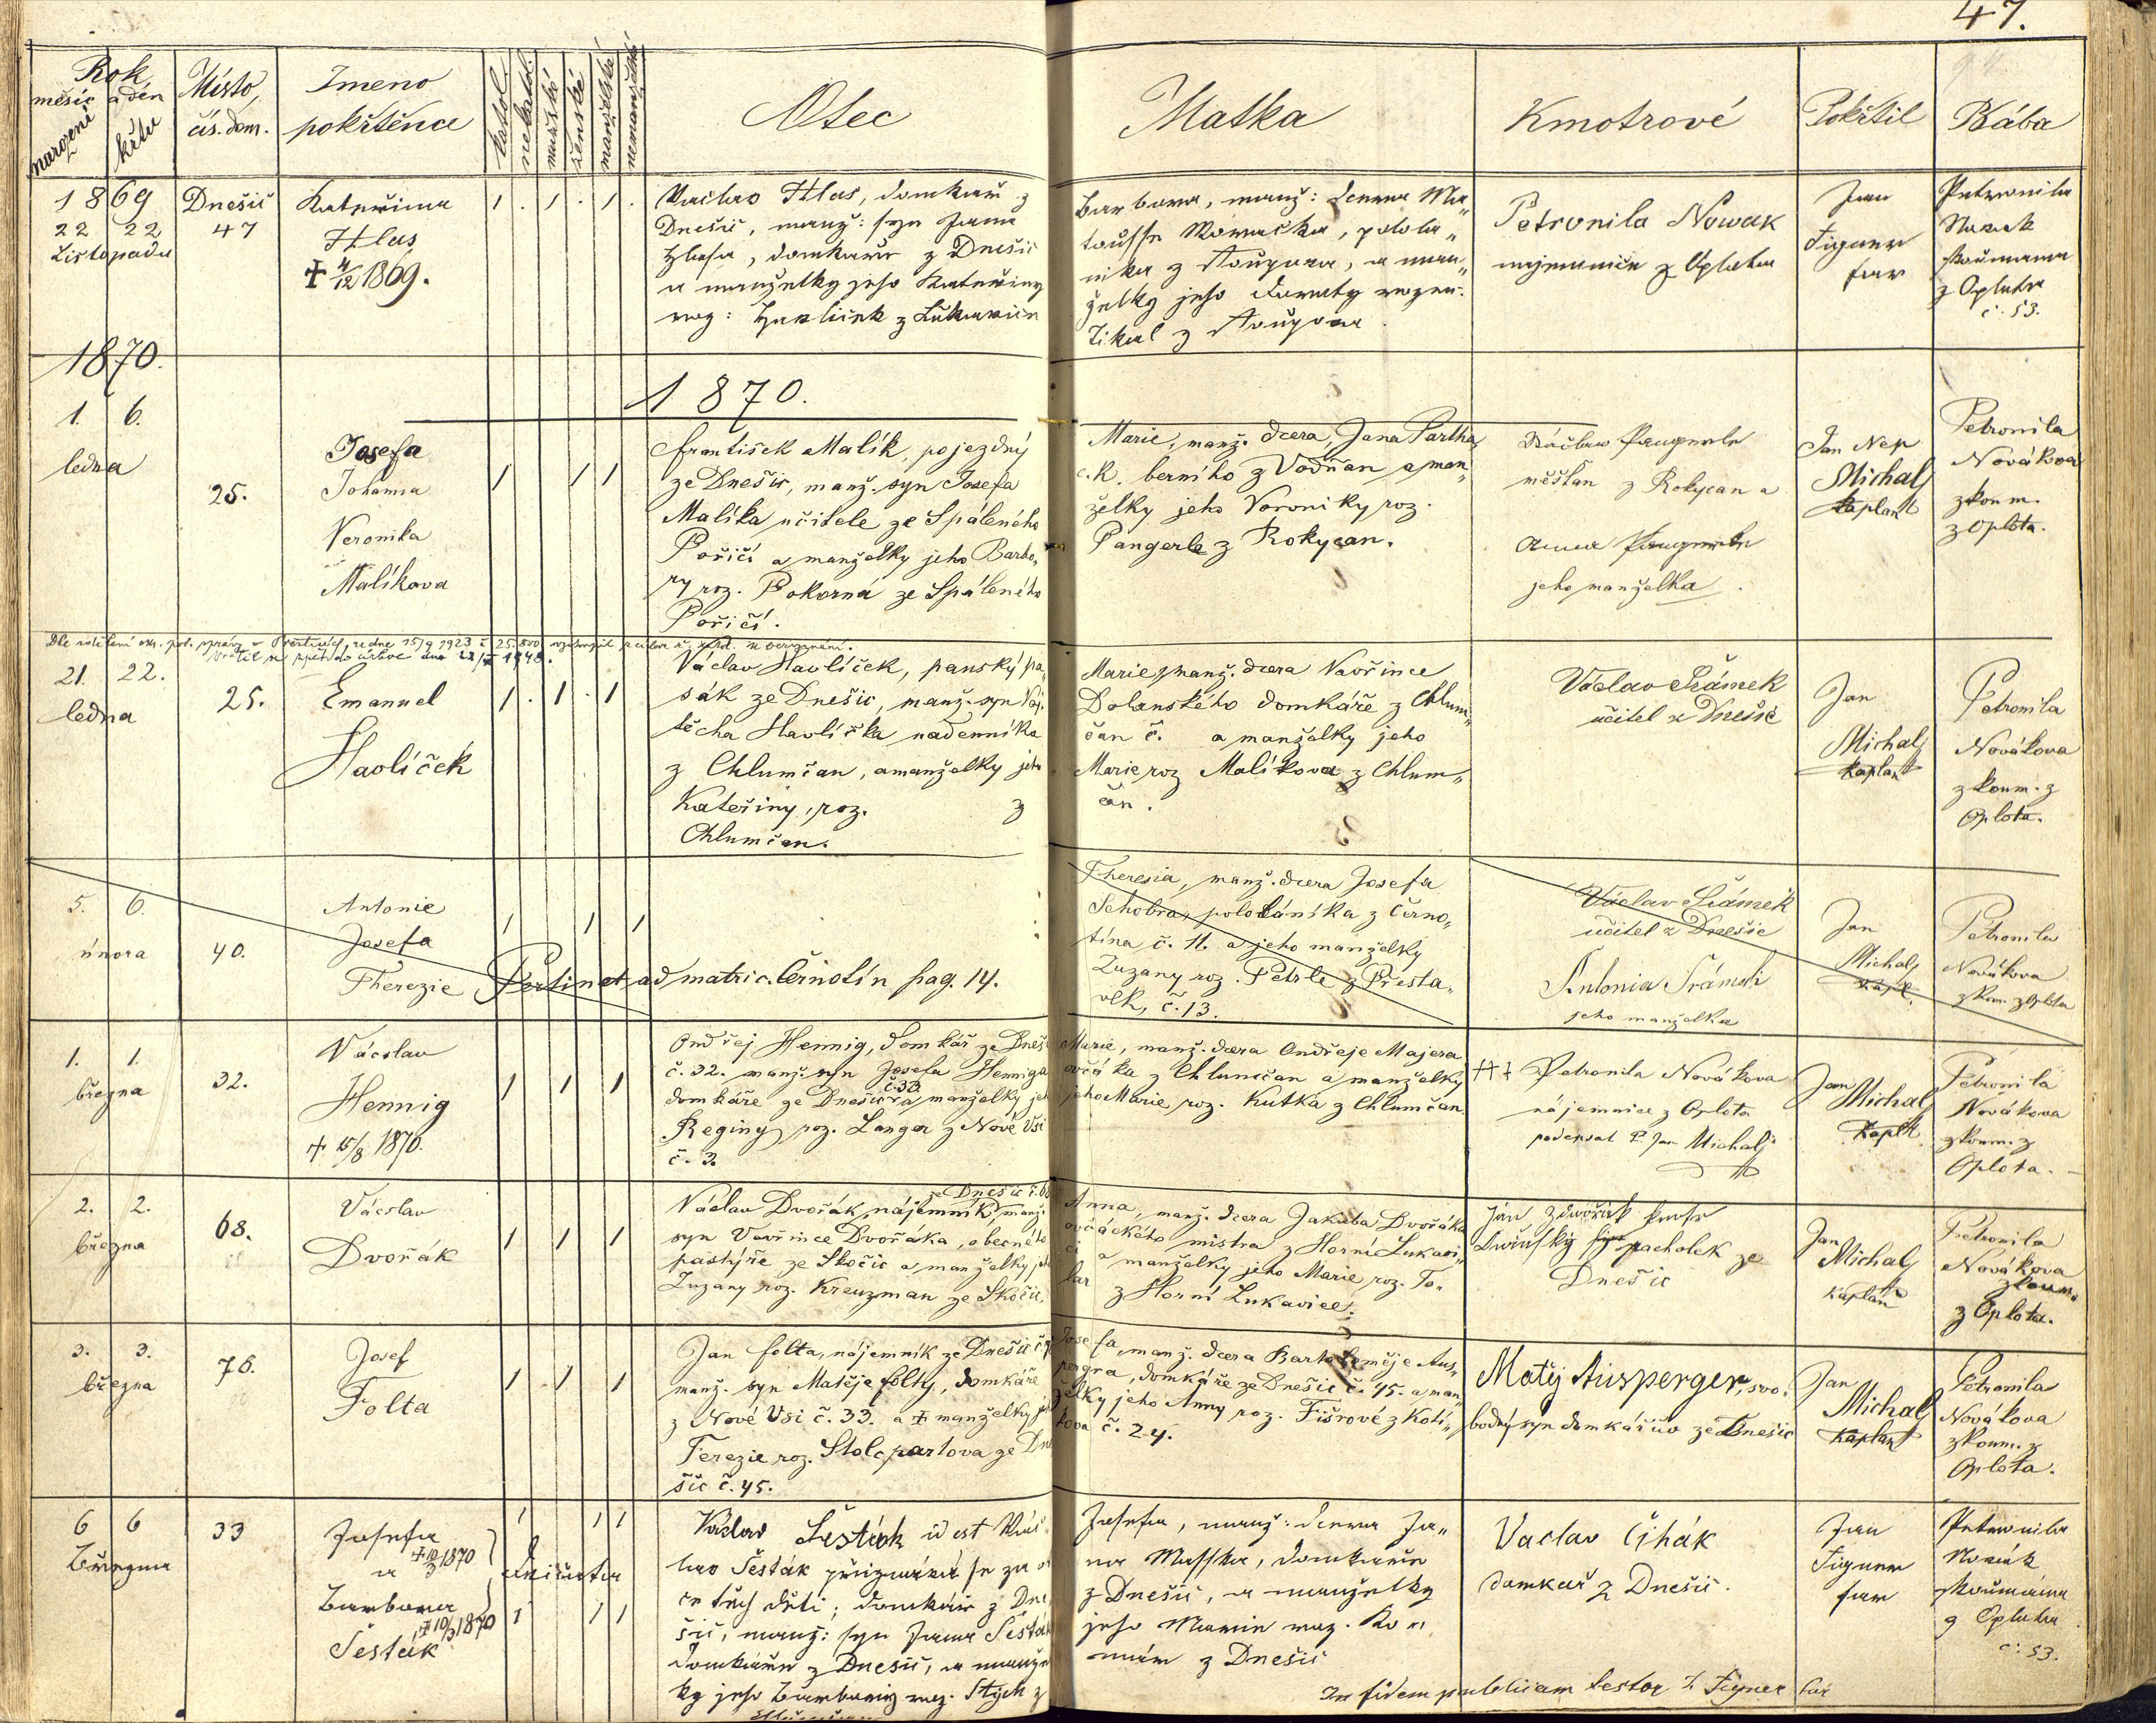 47.
Rok,
měsíc a den
narození
křtu
Místo,
čís. dom.
Jmeno
pokřtěnce
katol.
nekatol.
mužské
ženské
manželské
nemanželské
Otec
Matka
Kmotrové
Pokřtil
Bába
1869
22 22
Listopadu
Dnešic
47
Kateřina
Hlas
✝ 4/12 1869.
1 . 1 . 1 .
Václav Hlas, domkař z
Dnešic, manž: syn Jana
Hlasa, domkaře z Dnešic
a manželky jeho Kateřiny
roz: Hawliček z Lukawice
Barbora, manž: dcera Ma„
touše
nika z Stoupova, a man„
želky jeho Doroty rozen.
Tikal z Stoupova
Petronila Nowak
najemnice z Oplota
Jan
Figner
far
Petronila
Nowak
zkoumana
z Oplota
č. 53.
1870.
1870.
1. 6.
ledna
25.
Josefa
Johanna
Veronika
Malíkova
1 1 1
František Malík, pojezdný
ze Dnešic, manž. syn Josefa
Malíka učitele ze Spáleného
Poříčí a manželky jeho Barbo„
ry roz. Pokorná ze Spáleného
Poříčí.
Marie, manž. dcera, Jana Partha
c.k. berního z Vodňan a man„
želky jeho Voroniky roz.
Pangerle z Rokycan.
Václav Pangerle
měšťan z Rokycan a
Anna Pangerle
jeho manželka.
Jan Nep
Michalj
kaplan
Petronila
Novákova
zkoum.
z Oplota.
Dle sdělení okr. pol. správy v Přešticích, ze dne 15/9 1923 č. 25.800 vystoupil z církve ř. kat. bez vyznání.
Vrátil se zpět do církve dne 1948.
21. 22.
ledna
25.
Emanuel
Havlíček
1 . 1 . 1
Václav Havlíček, panský pa„
sák ze Dnešic, manž. syn Voj„
těcha Havlíčka nadenníka
z Chlumčan, a manželky jeho
Kateřiny, roz. z
Chlumčan.
Marie, manž. dcera Vavřince
Dolanského domkáře z Chlum„
čan č. a manželky jeho
Marie roz Malíkova z Chlum„
čan.
Václav Šrámek
učitel z Dnešic
Jan
Michalj
Kaplan
Petronila
Novákova
zkoum. z
Oplota.
5. 6.
února
40.
Antonie
Josefa
Therezie
1 1 1
Pertinet ad matric. Černotín pag. 14.
Theresia, manž. dcera Josefa
Schobra, pololáníka z Černo„
tína č. 11. a jeho manželky
Zuzany roz. Petrle z Přesta„
vlk, č. 13.
Václav Šrámek
učitel z Dnešic
Antonia Šrámek
jeho manželka
Jan
Michalj
kapl.
Petronila
Novákova
zkou. z Oplota
1. 1.
března
32.
Václav
Hennig
✝ 15/8 1870.
1 1 1
Ondřej Hennig, domkář ze Dneši
č. 32. manž. syn Josefa Henniga
domkáře ze Dnešic č. 33 a manželky jeh
Reginy roz. Langer z Nové Vsi
č. 3.
Marie, manž. dcera Ondřeje Majera
ovčáka z Chlumčan a manželky
jeho Marie, roz. Kutka z Chlumčan
✝✝✝ Petronila Novákova
nájemnice z Oplota
podepsal P. Jan Michalj
Jan
Michalj
Kapl.
Petronila
Novákova
zkoum. z
Oplota.
2. 2.
března
68.
Václav
Dvořák
1 1 1
ze Dnešic č. 68
Václav Dvořák, nájemník, manž.
syn Vavřince Dvořáka, obecného
pastýře ze Skočic a manželky jeho
Zuzany roz. Kreuzman ze Skočic.
Anna, manž. dcera Jakuba Dvořáka
ovčáckého mistra z Horní Lukavi„
ci a manželky jeho Marie roz. To„
lar z Horní Lukavice.
pacholek ze
Dnešic
Jan
Michalj
Kaplan
Petronila
Novákova
zkoum.
z Oplota.
3. 3.
března
76.
Josef
Folta
1 1 1
Jan Folta, nájemník ze Dnešic č.
manž. syn Matěje Folty, domkáře
z Nové Vsi č. 33. a ✝ manželky jeh
Terezie roz. Stolcpartova ze Dne
šic č. 45.
Josefa, manž. dcera Bartoloměje Aus„
pergra, domkáře ze Dnešic č. 45. a man„
želky jeho Anny roz. Fišrové z Kotí„
tova č. 24.
Matěj Ausperger, svo„
bodný syn domkářův ze Dnešic
Jan
Michalj
Kaplan
Petronila
Novákova
zkoum. z
Oplota.
6 6
Března
33
Josefa
✝ 10/3 1870
a
Barbora
✝ 10/3 1870
Šestak
1 1 1
dvojčata
1 1 1
Václav Šesták id est Vác„
lav Šesták přiznává se za ot
ce těch dětí; domkář z Dne
šic, manž: syn Jana Šesták
domkáře z Dnešic, a manžel
ky jeho Barbory roz. Stych z
Josefa, manž: dcera Ja„
na Masska, domkaře
z Dnešic, a manželky
jeho Marie roz. Ko„
z Dnešic
Vaclav Čihák
domkař z Dnešic.
Jan
Figner
far
Petronila
Nowák
zkoumána
z Oplota
č. 53.
In fidem publicam testor J. Figner far